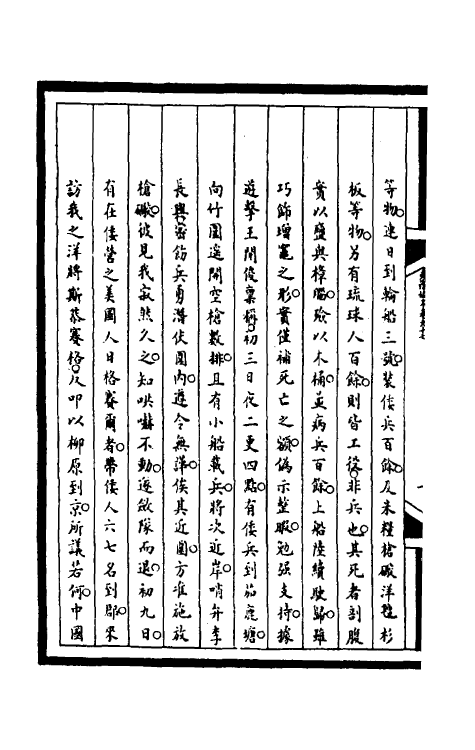 等物。連日到輪船三號。裝倭兵百餘。及米糧槍礮洋氊杉
板等物。另有琉球人百餘。則皆工役。非兵也。其死者剖腹
實以鹽與樟腦。殮以木桶。並病兵百餘。上船陸續駛歸。雖
巧飾增竈之形。實僅補死亡之額。偽示整暇。勉強支持。據
遊擊王開俊稟稱。初三日夜二更四點。有倭兵到茄鹿塘。
向竹圍遙開空槍數排。且有小船載兵。將次近岸。哨弁李
長興密飭兵勇潛伏圍內。遵令無譁。俟其近圍。方准施放
槍礮。彼見我寂然久之。知哄嚇不動。遂斂隊而退。初九日。
有在倭營之美國人日格賽爾者。帶倭人六七名到郡。來
訪我之洋將斯恭賽格。及叩以柳原到京。所議若何。中國